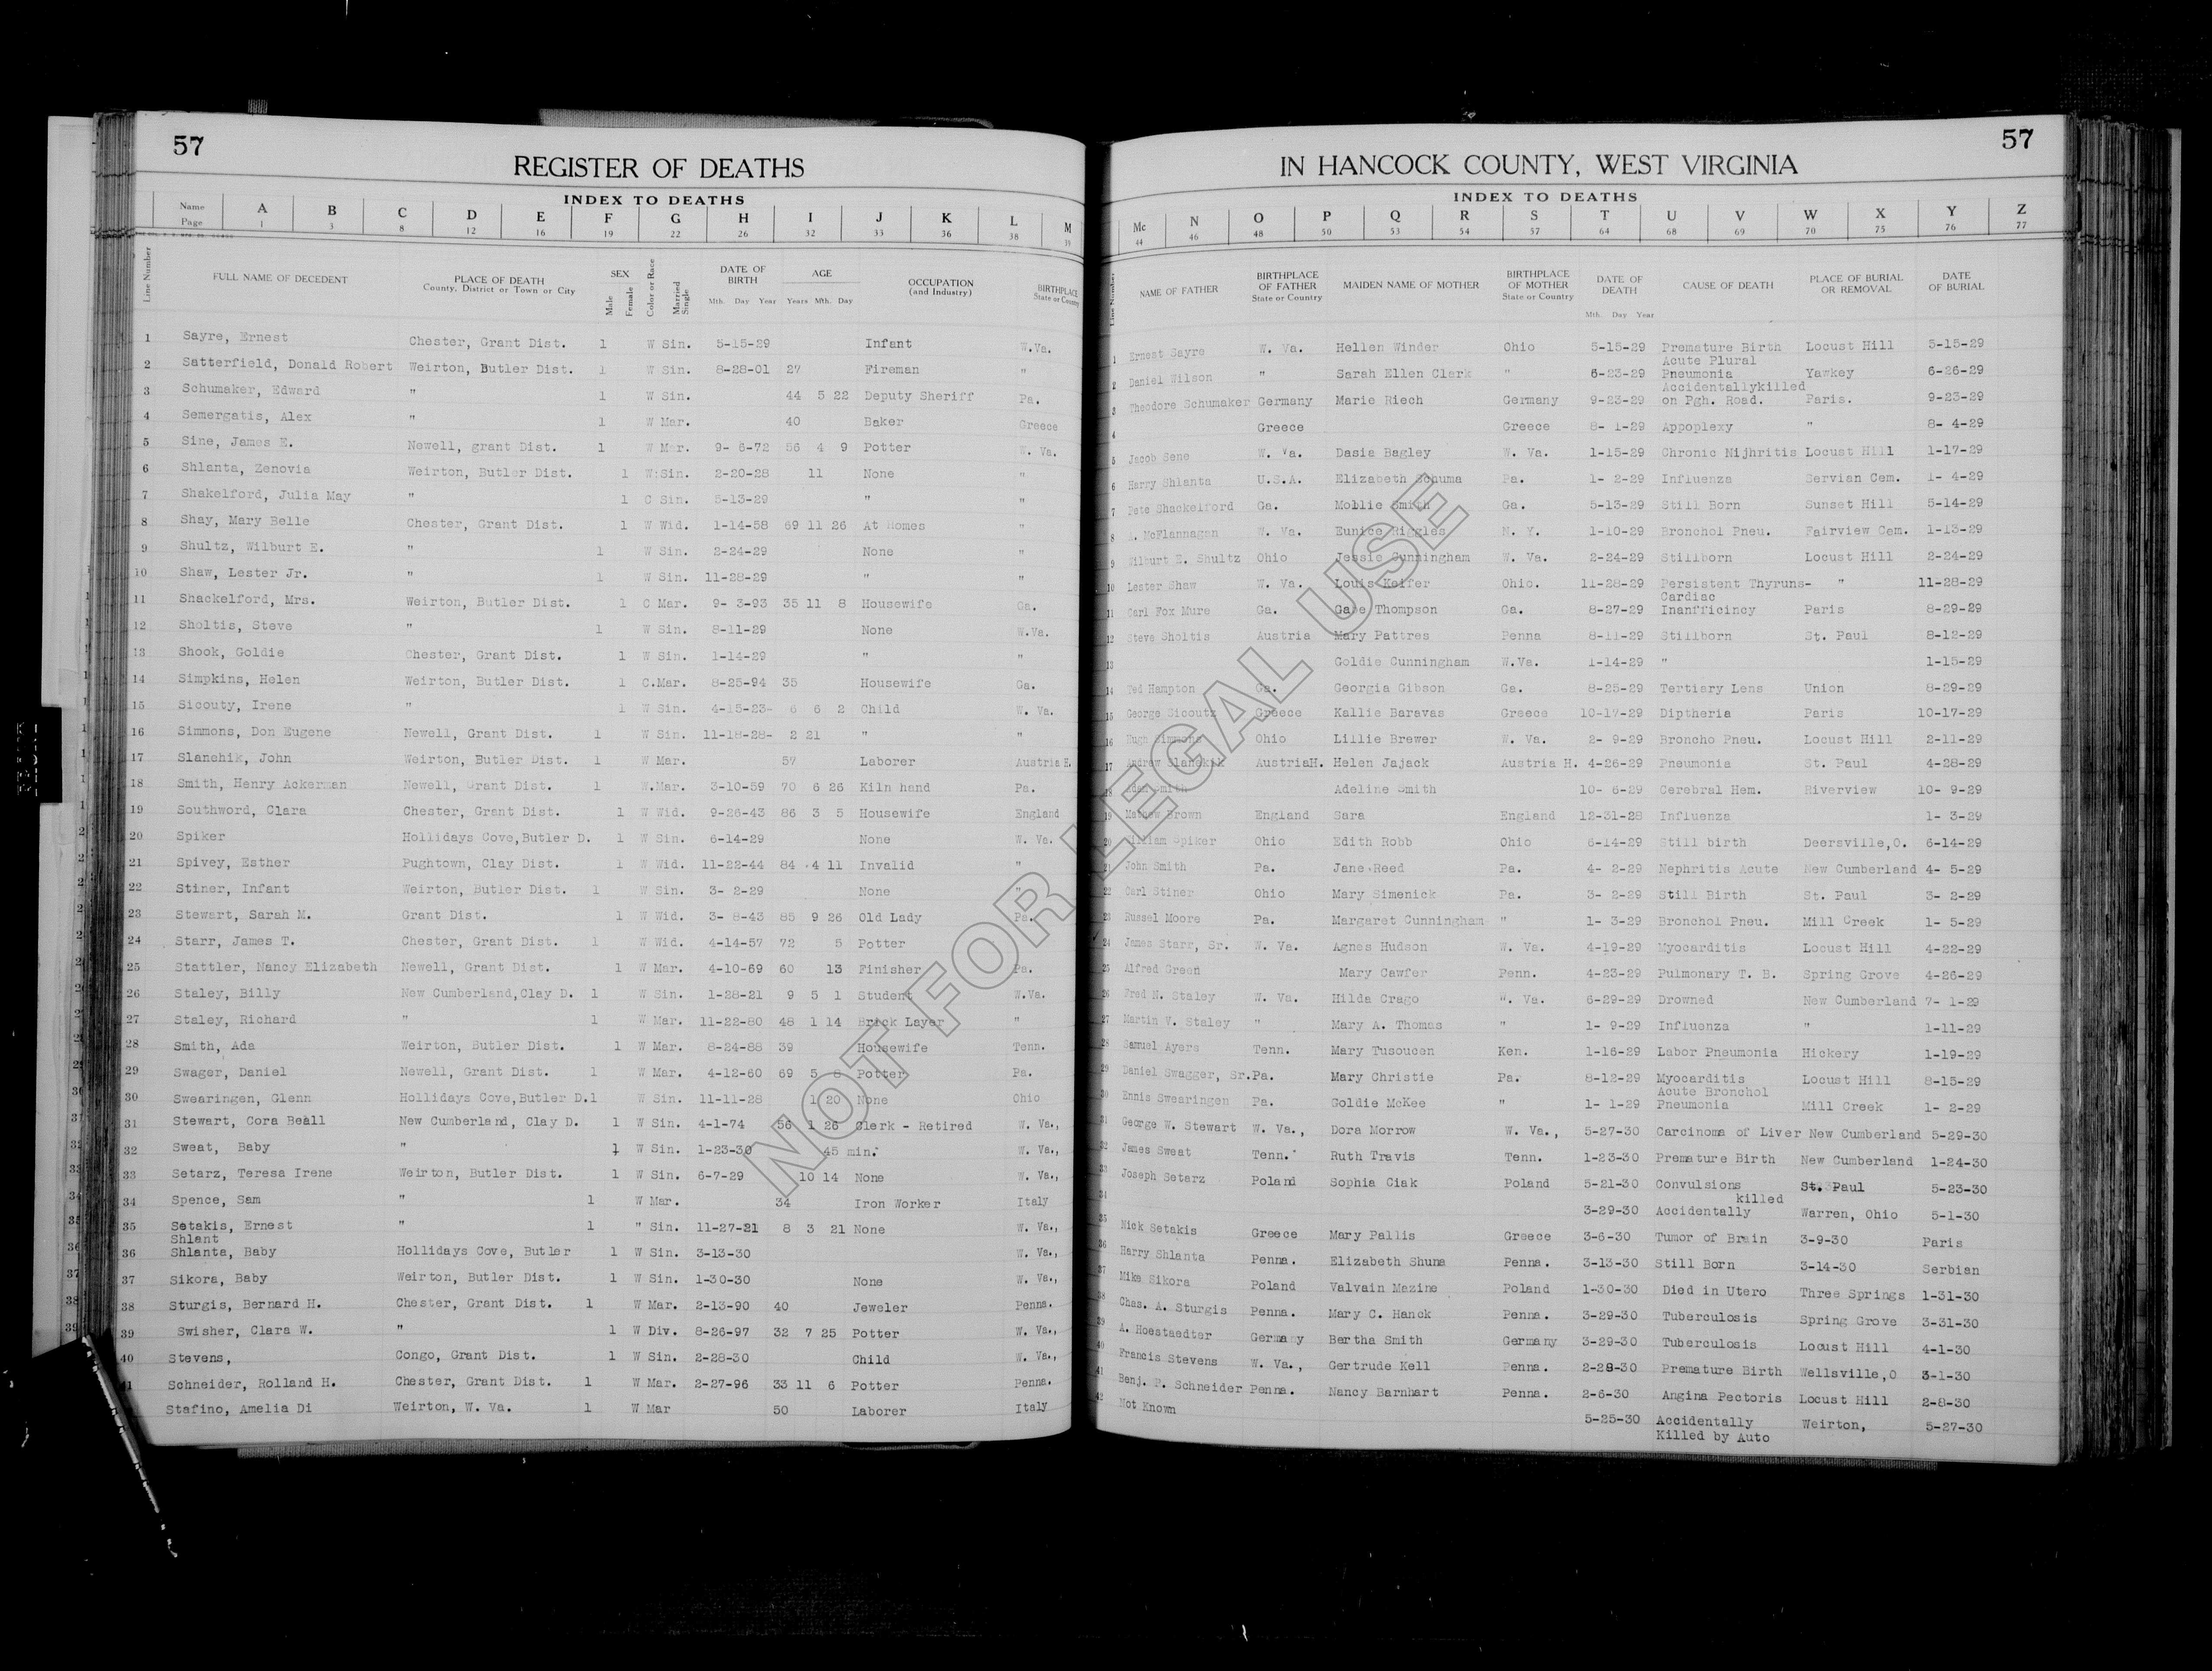 57
REGISTER OF DEATHS
INDEX TO DEATHS
Name Page A 1 B 3 C 8 D 12 E 16 F 19 G 22 H 26 I 32 J 33 K 36 L 38 M 39
Line Number FULL NAME OF DECEDENT PLACE OF DEATH County, District or Town or City SEX Male Female Color or Race Married Single DATE OF BIRTH Mth. Day Year AGE Years Mth. Day OCCUPATION (and Industry) BIRTHPLACE State or Country
1 Sayre, Ernest Chester, Grant Dist. 1 W Sin. 5-15-29 Infant W.Va.
2 Satterfield, Donald Robert Weirton, Butler Dist. 1 W Sin. 8-28-01 27 Fireman "
3 Schumaker, Edward " 1 W Sin. 44 5 22 Deputy Sheriff Pa.
4 Semergatis, Alex " 1 W Mar. 40 Baker Greece
5 Sine, James E. Newell, grant Dist. 1 W Mar. 9- 6-72 56 4 9 Potter W. Va.
6 Shlanta, Zenovia Weirton, Butler Dist. 1 W:Sin. 2-20-28 11 None "
7 Shakelford, Julia May " 1 C Sin. 5-13-29 " "
8 Shay, Mary Belle Chester, Grant Dist. 1 W Wid. 1-14-58 69 11 26 At Homes "
9 Shultz, Wilburt E. " 1 W Sin. 2-24-29 None "
10 Shaw, Lester Jr. " 1 W Sin. 11-28-29 " "
11 Shackelford, Mrs. Weirton, Butler Dist. 1 C Mar. 9- 3-93 35 11 8 Housewife Ga.
12 Sholtis, Steve " 1 W Sin. 8-11-29 None W.Va.
13 Shook, Goldie Chester, Grant Dist. 1 W Sin. 1-14-29 " "
14 Simpkins, Helen Weirton, Butler Dist. 1 C.Mar. 8-25-94 35 Housewife Ga.
15 Sicouty, Irene " 1 W Sin. 4-15-23- 6 6 2 Child W. Va.
16 Simmons, Don Eugene Newell, Grant Dist. 1 W Sin. 11-18-28- 2 21 " "
17 Slanchik, John Weirton, Butler Dist. 1 W Mar. 57 Laborer Austria H.
18 Smith, Henry Ackerman Newell, Grant Dist. 1 W.Mar. 3-10-59 70 6 26 Kiln hand Pa.
19 Southword, Clara Chester, Grant Dist. 1 W Wid. 9-26-43 86 3 5 Housewife England
20 Spiker Hollidays Cove,Butler D. 1 W Sin. 6-14-29 None W. Va.
21 Spivey, Esther Pughtown, Clay Dist. 1 W Wid. 11-22-44 84 4 11 Invalid "
22 Stiner, Infant Weirton, Butler Dist. 1 W Sin. 3- 2-29 None "
23 Stewart, Sarah M. Grant Dist. 1 W Wid. 3- 8-43 85 9 26 Old Lady Pa.
24 Starr, James T. Chester, Grant Dist. 1 W Wid. 4-14-57 72 5 Potter
25 Stattler, Nancy Elizabeth Newell, Grant Dist. 1 W Mar. 4-10-69 60 13 Finisher Pa.
26 Staley, Billy New Cumberland,Clay D. 1 W Sin. 1-28-21 9 5 1 Student W.Va.
27 Staley, Richard " 1 W Mar. 11-22-80 48 1 14 Brick Layer "
28 Smith, Ada Weirton, Butler Dist. 1 W Mar. 8-24-88 39 Housewife Tenn.
29 Swager, Daniel Newell, Grant Dist. 1 W Mar. 4-12-60 69 5 8 Potter Pa.
30 Swearingen, Glenn Hollidays Cove,Butler D.1 W Sin. 11-11-28 1 20 None Ohio
31 Stewart, Cora Beall New Cumberland, Clay D. 1 W Sin. 4-1-74 56 1 26 Clerk - Retired W. Va.,
32 Sweat, Baby " 1 W Sin. 1-23-30 45 min. W. Va.,
33 Setarz, Teresa Irene Weirton, Butler Dist. 1 W Sin. 6-7-29 10 14 None W. Va.,
34 Spence, Sam " 1 W Mar. 34 Iron Worker Italy
35 Setakis, Ernest " 1 " Sin. 11-27-21 8 3 21 None W. Va.,
Shlant
36 Shlanta, Baby Hollidays Cove, Butler 1 W Sin. 3-13-30 W. Va.,
37 Sikora, Baby Weirton, Butler Dist. 1 W Sin. 1-30-30 None W. Va.,
38 Sturgis, Bernard H. Chester, Grant Dist. 1 W Mar. 2-13-90 40 Jeweler Penna.
39 Swisher, Clara W. " 1 W Div. 8-26-97 32 7 25 Potter W. Va.,
40 Stevens, Congo, Grant Dist. 1 W Sin. 2-28-30 Child W. Va.,
41 Schneider, Rolland H. Chester, Grant Dist. 1 W Mar. 2-27-96 33 11 6 Potter Penna.
Stafino, Amelia Di Weirton, W. Va. 1 W Mar 50 Laborer Italy
57
IN HANCOCK COUNTY, WEST VIRGINIA
INDEX TO DEATHS
Mc 44 N 46 O 48 P 50 Q 53 R 54 S 57 T 64 U 68 V 69 W 70 X 75 Y 76 Z 77
Line Number NAME OF FATHER BIRTHPLACE OF FATHER State or Country MAIDEN NAME OF MOTHER BIRTHPLACE OF MOTHER State or Country DATE OF DEATH Mth. Day Year CAUSE OF DEATH PLACE OF BURIAL OR REMOVAL DATE OF BURIAL
1 Ernest Sayre W. Va. Hellen Winder Ohio 5-15-29 Premature Birth Locust Hill 5-15-29
Acute Plural
2 Daniel Wilson " Sarah Ellen Clark " 6-23-29 Pneumonia Yawkey 6-26-29
Accidentallykilled
3 Theodore Schumaker Germany Marie Riech Germany 9-23-29 on Pgh. Road. Paris. 9-23-29
4 Greece Greece 8- 1-29 Appoplexy " 8- 4-29
5 Jacob Sene W. Va. Dasia Bagley W. Va. 1-15-29 Chronic Nijhritis Locust Hill 1-17-29
6 Harry Shlanta U.S.A. Elizabeth Schuma Pa. 1- 2-29 Influenza Servian Cem. 1- 4-29
7 Pete Shackelford Ga. Mollie Smith Ga. 5-13-29 Still Born Sunset Hill 5-14-29
8 A. McFlannagan W. Va. Eunice Riggles N. Y. 1-10-29 Bronchol Pneu. Fairview Cem. 1-13-29
9 Wilburt E. Shultz Ohio Jessie Cunningham W. Va. 2-24-29 Stillborn Locust Hill 2-24-29
10 Lester Shaw W. Va. Louis Keifer Ohio. 11-28-29 Persistent Thyruns- " 11-28-29
Cardiac
11 Carl Fox Mure Ga. Gabe Thompson Ga. 8-27-29 Inanfficincy Paris 8-29-29
12 Steve Sholtis Austria Mary Pattres Penna 8-11-29 Stillborn St. Paul 8-12-29
13 Goldie Cunningham W.Va. 1-14-29 " 1-15-29
14 Ted Hampton Ga. Georgia Gibson Ga. 8-25-29 Tertiary Lens Union 8-29-29
15 George Sicoutz Greece Kallie Baravas Greece 10-17-29 Diptheria Paris 10-17-29
16 Hugh Simmons Ohio Lillie Brewer W. Va. 2- 9-29 Broncho Pneu. Locust Hill 2-11-29
17 Andrew Slanchik AustriaH. Helen Jajack Austria H. 4-26-29 Pneumonia St. Paul 4-28-29
18 Adam Smith Adeline Smith 10- 6-29 Cerebral Hem. Riverview 10- 9-29
19 Mathew Brown England Sara England 12-31-28 Influenza 1- 3-29
20 William Spiker Ohio Edith Robb Ohio 6-14-29 Still birth Deersville,O. 6-14-29
21 John Smith Pa. Jane Reed Pa. 4- 2-29 Nephritis Acute New Cumberland 4- 5-29
22 Carl Stiner Ohio Mary Simenick Pa. 3- 2-29 Still Birth St. Paul 3- 2-29
23 Russel Moore Pa. Margaret Cunningham " 1- 3-29 Bronchol Pneu. Mill Creek 1- 5-29
24 James Starr, Sr. W. Va. Agnes Hudson W. Va. 4-19-29 Myocarditis Locust Hill 4-22-29
25 Alfred Green Mary Cawfer Penn. 4-23-29 Pulmonary T. B. Spring Grove 4-26-29
26 Fred N. Staley W. Va. Hilda Crago W. Va. 6-29-29 Drowned New Cumberland 7- 1-29
27 Martin V. Staley " Mary A. Thomas " 1- 9-29 Influenza " 1-11-29
28 Samuel Ayers Tenn. Mary Tusoucen Ken. 1-16-29 Labor Pneumonia Hickery 1-19-29
29 Daniel Swagger, Sr.Pa. Mary Christie Pa. 8-12-29 Myocarditis Locust Hill 8-15-29
Acute Bronchol
30 Ennis Swearingen Pa. Goldie McKee " 1- 1-29 Pneumonia Mill Creek 1- 2-29
31 George W. Stewart W. Va., Dora Morrow W. Va., 5-27-30 Carcinoma of Liver New Cumberland 5-29-30
32 James Sweat Tenn. Ruth Travis Tenn. 1-23-30 Premature Birth New Cumberland 1-24-30
33 Joseph Setarz Poland Sophia Ciak Poland 5-21-30 Convulsions St. Paul 5-23-30
killed
34 3-29-30 Accidentally Warren, Ohio 5-1-30
35 Nick Setakis Greece Mary Pallis Greece 3-6-30 Tumor of Brain 3-9-30 Paris
36 Harry Shlanta Penna. Elizabeth Shuma Penna. 3-13-30 Still Born 3-14-30 Serbian
37 Mike Sikora Poland Valvain Mazine Poland 1-30-30 Died in Utero Three Springs 1-31-30
38 Chas. A. Sturgis Penna. Mary C. Hanck Penna. 3-29-30 Tuberculosis Spring Grove 3-31-30
39 A. Hoestaedter Germany Bertha Smith Germany 3-29-30 Tuberculosis Locust Hill 4-1-30
40 Francis Stevens W. Va., Gertrude Kell Penna. 2-28-30 Premature Birth Wellsville,O 3-1-30
41 Benj. P. Schneider Penna. Nancy Barnhart Penna. 2-6-30 Angina Pectoris Locust Hill 2-8-30
42 Not Known 5-25-30 Accidentally Weirton, 5-27-30
Killed by Auto
NOT FOR LEGAL USE